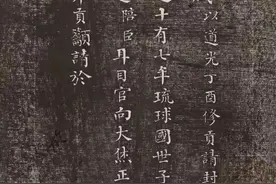 以道光丁酉修貢請封
十有七年琉球國世子
陪臣耳目官向大烋正
貢籲請於